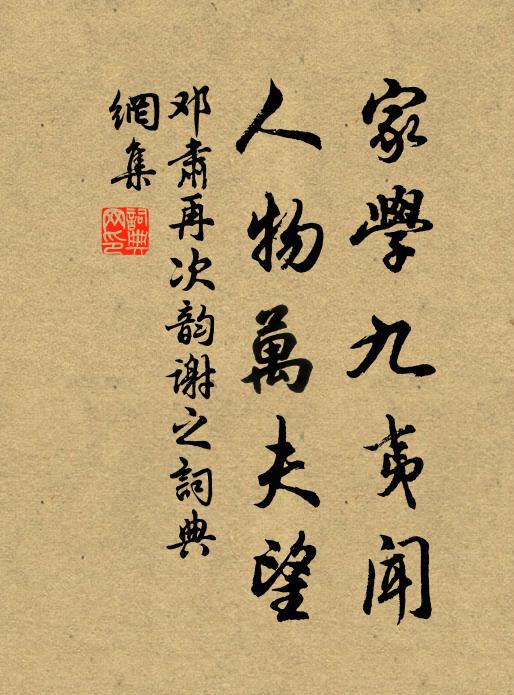 家學九夷聞
人物萬夫望
邓肅再次韵谢之詞典
網集
詞典
网印